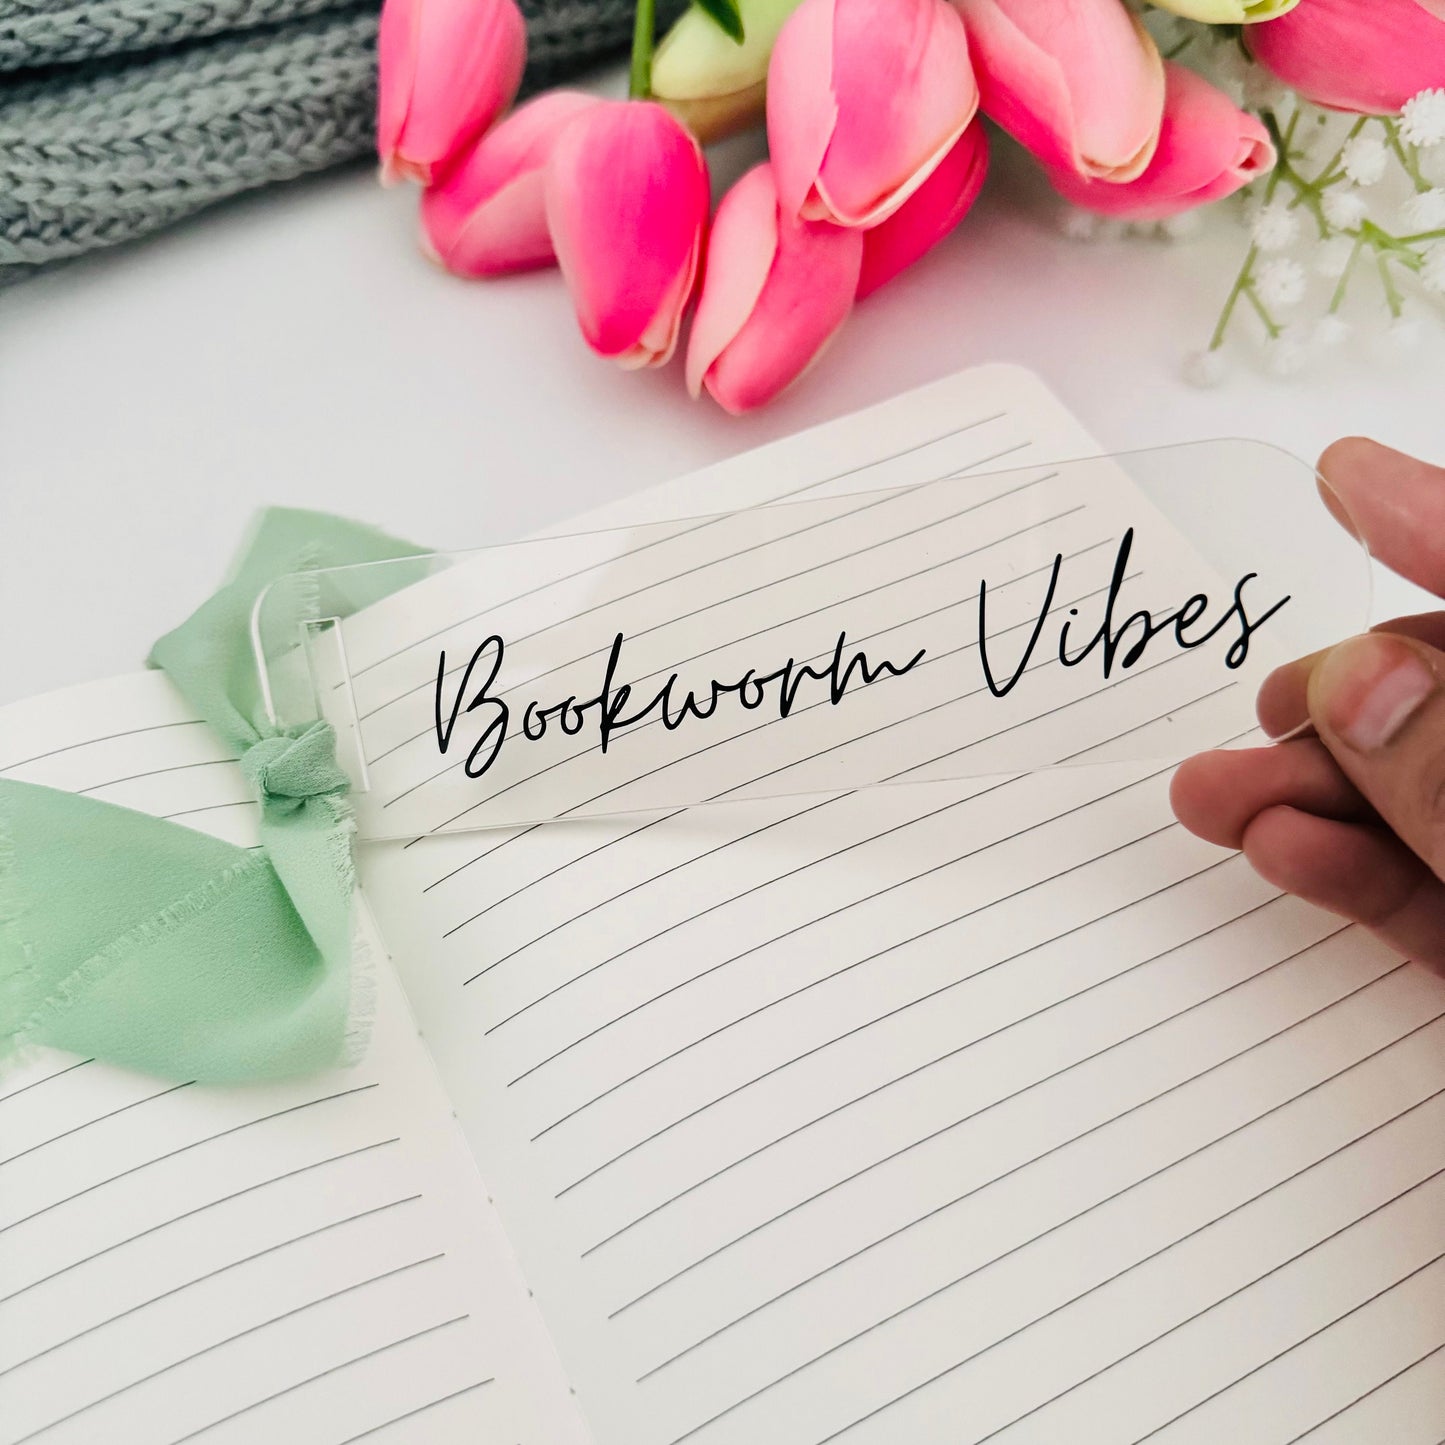 Bookworm Vibes